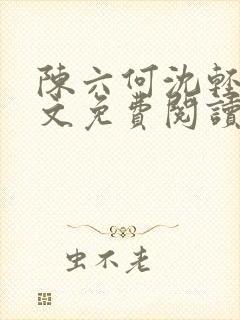 陳六何沈輕
文免費閱讀
虫不老